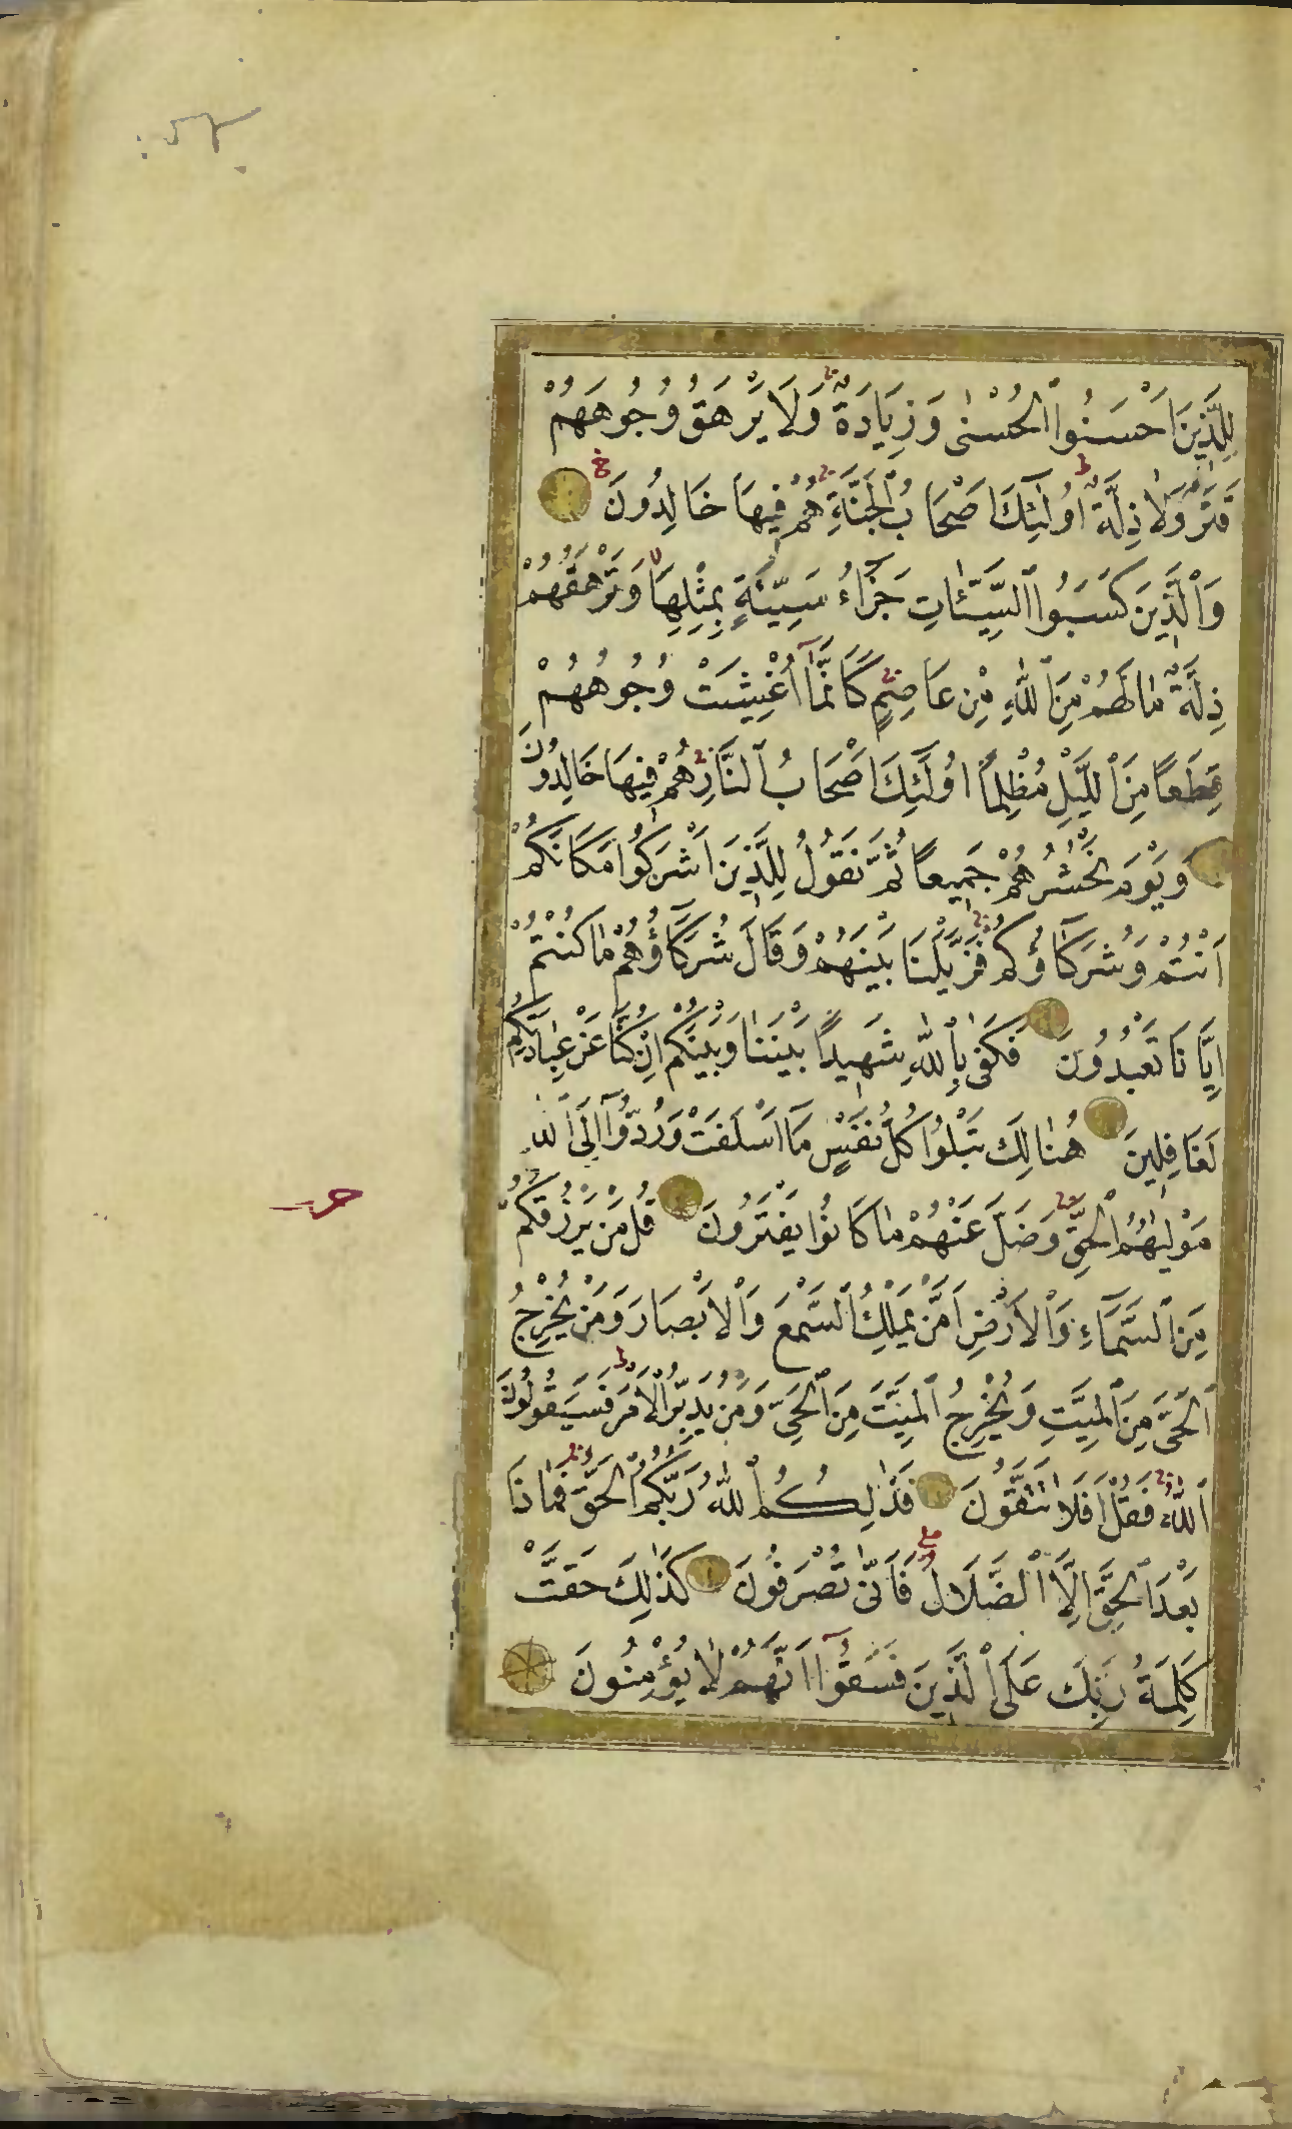 لِلَّذِينَ اَحْسَنُوا الْحُسْنٰى وَزِيَادَةٌ وَلَا يَرْهَقُ وُجُوهَهُمْ
قَتَرٌ وَلَا ذِلَّةٌ اُولٰئِكَ اَصْحَابُ الْجَنَّةِ هُمْ فِيهَا خَالِدُونَ
وَالَّذِينَ كَسَبُوا السَّيِّئَاتِ جَزَاءُ سَيِّئَةٍ بِمِثْلِهَا وَتَرْهَقُهُمْ
ذِلَّةٌ مَا لَهُمْ مِنَ اللّٰهِ مِنْ عَاصِمٍ كَاَنَّمَا اُغْشِيَتْ وُجُوهُهُمْ
قِطَعًا مِنَ اللَّيْلِ مُظْلِمًا اُولٰئِكَ اَصْحَابُ النَّارِ هُمْ فِيهَا خَالِدُونَ
وَيَوْمَ نَحْشُرُهُمْ جَمِيعًا ثُمَّ نَقُولُ لِلَّذِينَ اَشْرَكُوا مَكَانَكُمْ
اَنْتُمْ وَشُرَكَاؤُكُمْ فَزَيَّلْنَا بَيْنَهُمْ وَقَالَ شُرَكَاؤُهُمْ مَا كُنْتُمْ
اِيَّانَا تَعْبُدُونَ فَكَفٰى بِاللّٰهِ شَهِيدًا بَيْنَنَا وَبَيْنَكُمْ اِنْ كُنَّا عَنْ عِبَادَتِكُمْ
لَغَافِلِينَ هُنَالِكَ تَبْلُوا كُلُّ نَفْسٍ مَا اَسْلَفَتْ وَرُدُّوا اِلَى اللّٰهِ
مَوْلٰيهُمُ الْحَقِّ وَضَلَّ عَنْهُمْ مَا كَانُوا يَفْتَرُونَ قُلْ مَنْ يَرْزُقُكُمْ
مِنَ السَّمَاءِ وَالْاَرْضِ اَمَّنْ يَمْلِكُ السَّمْعَ وَالْاَبْصَارَ وَمَنْ يُخْرِجُ
الْحَىَّ مِنَ الْمَيِّتِ وَيُخْرِجُ الْمَيِّتَ مِنَ الْحَىِّ وَمَنْ يُدَبِّرُ الْاَمْرَ فَسَيَقُولُونَ
اللّٰهُ فَقُلْ اَفَلَا تَتَّقُونَ فَذٰلِكُمُ اللّٰهُ رَبُّكُمُ الْحَقُّ فَمَاذَا
بَعْدَ الْحَقِّ اِلَّا الضَّلَالُ فَاَنّٰى تُصْرَفُونَ كَذٰلِكَ حَقَّتْ
كَلِمَةُ رَبِّكَ عَلَى الَّذِينَ فَسَقُوا اَنَّهُمْ لَا يُؤْمِنُونَ